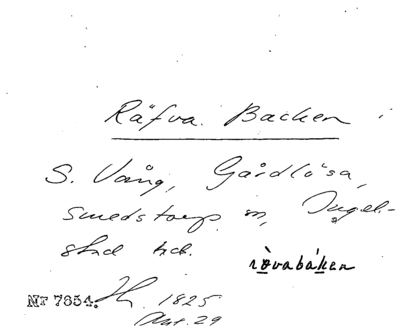 Räfva Backen
S. Vång, Gårdlösa,
Smedstorps sn, Ingel-
stad hd.
rövabáken
Nr 7654. Hh. 1825
Akt. 29